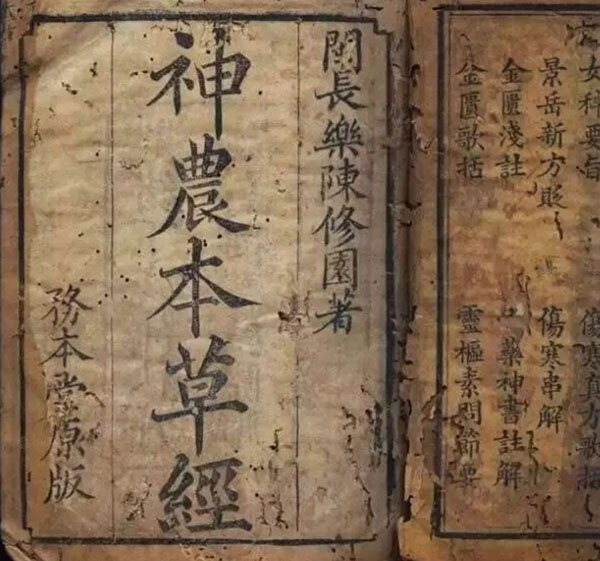 女科要旨 傷寒真方歌括
景岳新方貶 傷寒串解
金匱淺註 藥神書註解
金匱歌括 靈樞素問節要
閩長樂陳修園著
神農本草經
務本堂原版